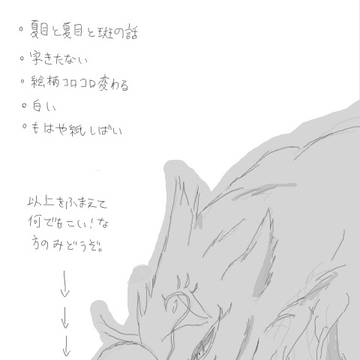 。夏目と夏目と斑の話
。字きたない
。絵柄コロコロ変わる
。白い
。もはや紙しばい
以上をふまえて
何でもこい!な
方のみどうぞ。